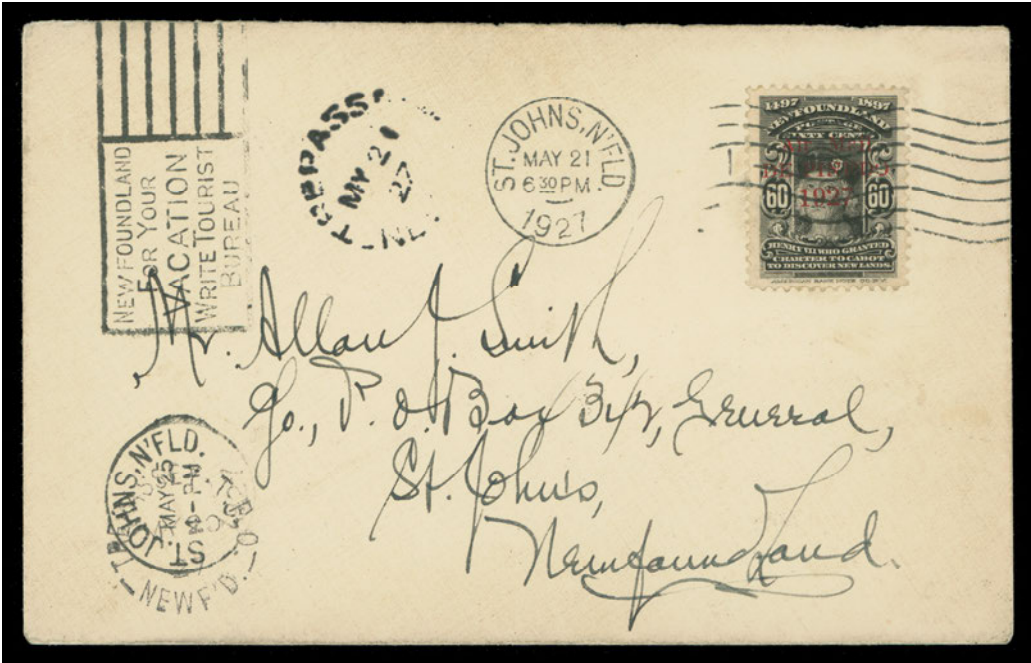 NEWFOUNDLAND
FOR YOUR
VACATION
WRITE TOURIST
BUREAU
TREPASS
MY 21
27
ST. JOHNS, N'FLD.
MAY 21
6 30 PM
1927
1497 1897
NEWFOUNDLAND
POSTAGE
SIXTY CENTS
AIR MAIL
DE PINEDO
1927
60 60
HENRY VII WHO GRANTED
CHARTER TO CABOT
TO DISCOVER NEW LANDS
AMERICAN BANK NOTE CO. N.Y.
Mr. Allan J. Smith,
Co., P. O. Box 342, General,
St. John's,
Newfoundland.
ST. JOHNS, N'FLD.
MAY 25
4 - PM
NEWF'D.